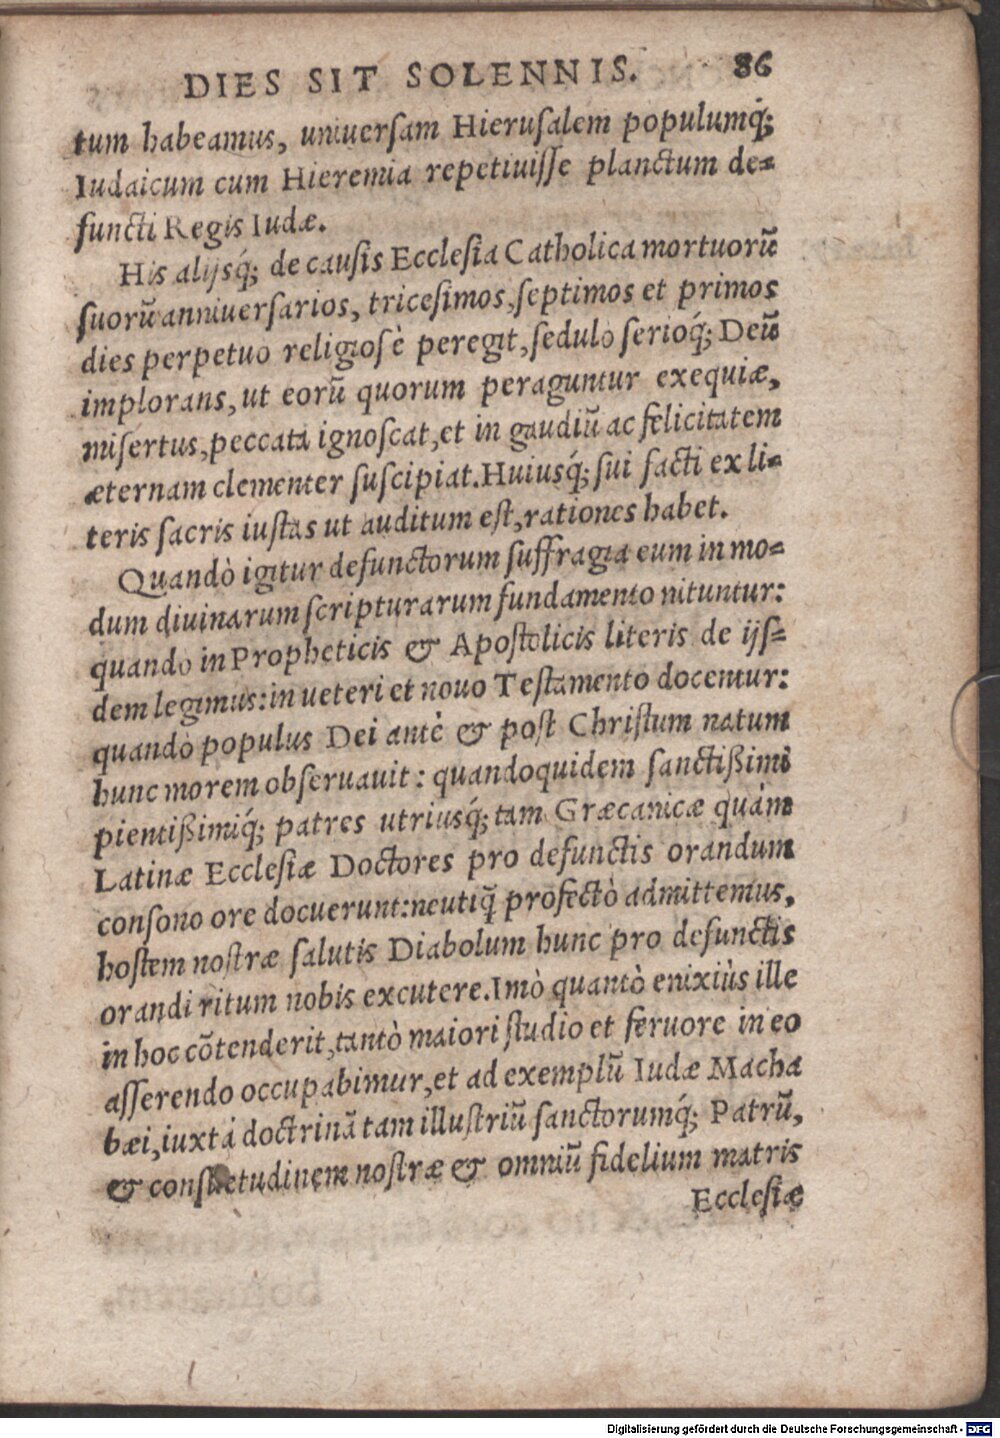 DIES SIT SOLENNIS. 86
tum habeamus, uniuersam Hierusalem populumq́;
Iudaicum cum Hieremia repetiuisse planctum de-
functi Regis Iudæ.
His alijsq́; de causis Ecclesia Catholica mortuorũ
suorũ anniuersarios, tricesimos, septimos et primos
dies perpetuo religiosè peregit, sedulo serioq́; Deũ
implorans, ut eorũ quorum peraguntur exequiæ,
misertus, peccata ignoscat, et in gaudiũ ac felicitatem
æternam clementer suscipiat. Huiusq́; sui facti ex li-
teris sacris iustas ut auditum est, rationes habet.
Quandò igitur defunctorum suffragia eum in mo-
dum diuinarum scripturarum fundamento nituntur:
quando in Propheticis & Apostolicis literis de ijs-
dem legimus: in ueteri et nouo Testamento docentur:
quandò populus Dei antè & post Christum natum
hunc morem obseruauit: quandoquidem sanctißimi
pientißimiq́; patres utriusq́; tam Græcanicæ quàm
Latinæ Ecclesiæ Doctores pro defunctis orandum
consono ore docuerunt: neutiq̃ profectò admittemus,
hostem nostræ salutis Diabolum hunc pro defunctis
orandi ritum nobis excutere. Imò quantò enixiùs ille
in hoc cõtenderit, tantò maiori studio et feruore in eo
asserendo occupabimur, et ad exemplũ Iudæ Macha
bæi, iuxtá doctrinã tam illustriũ sanctorumq́; Patrũ,
& consuetudinem nostræ & omniũ fidelium matris
Ecclesiæ
Digitalisierung gefördert durch die Deutsche Forschungsgemeinschaft - DFG